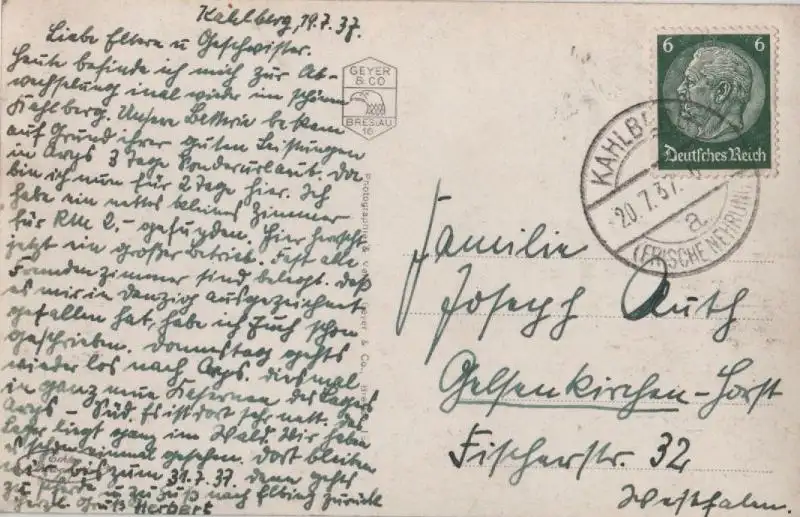 Kahlberg, 19.7.37.
Liebe Eltern u Geschwister.
Heute befinde ich mich zur Ab-
wechselung mal wieder im schönen
Kahlberg. Unsere Batterie bekam
auf Grund ihrer guten Leistungen
in Arys 3 Tage Sonderurlaub. Da
bin ich nun für 2 Tage hier. Ich
habe ein nettes kleines Zimmer
für RM 2.- gefunden. Hier herrscht
jetzt ein großer Betrieb. Fast alle
Fremdenzimmer sind belegt. Daß
es mir in Danzig ausgezeichnet
gefallen hat, habe ich Euch schon
geschrieben. Donnerstag gehts
wieder los nach Arys. Diesmal
in ganz neue Kasernen des Lagers
Arys - Süd. Es ist dort sehr nett. Das
Lager liegt ganz im Wald. Wir haben
es schon einmal gesehen. Dort bleiben
wir bis zum 31.7.37. dann gehts
zu Pferde u zu Fuß nach Elbing zurück
Herzl. Gruß Herbert
GEYER
& CO
BRESLAU
16
6 6
Deutsches Reich
KAHLB
20.7.37.
a
(FRISCHE NEHRUNG
Familie
Joseph Auth
Gelsenkirchen-Horst
Fischerstr. 32
Westfalen.